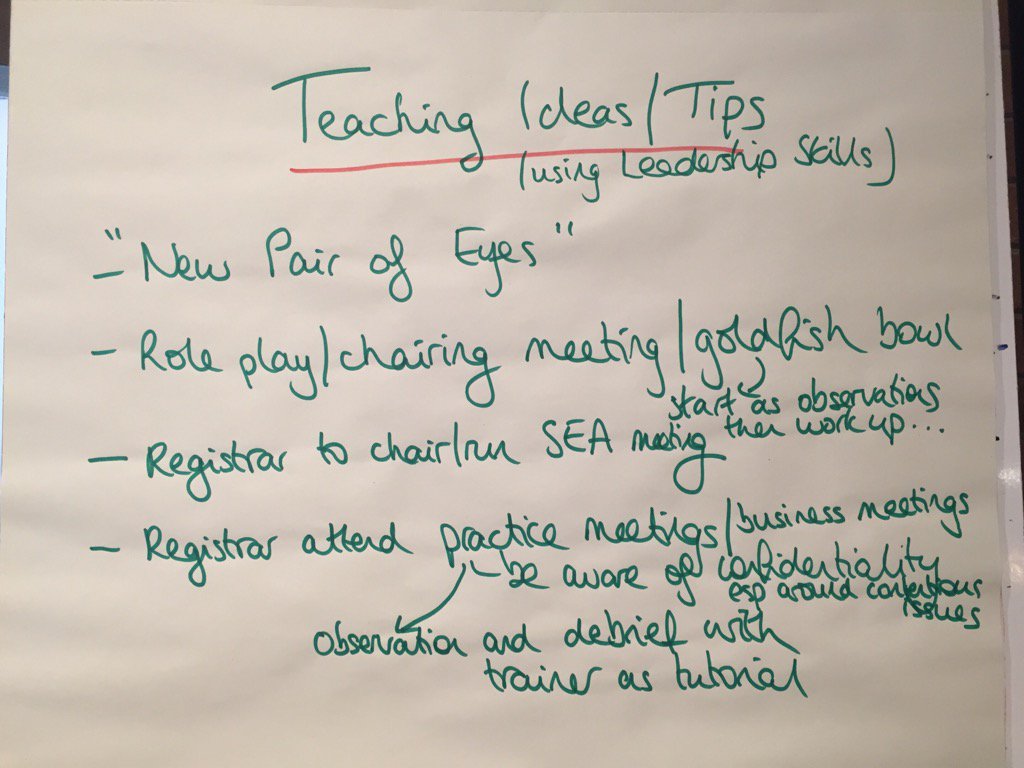 Teaching Ideas/Tips
(using Leadership Skills)
- "New Pair of Eyes"
- Role play/chairing meeting/goldfish bowl
start as observations
then work up...
- Registrar to chair/run SEA meeting
- Registrar attend practice meetings/business meetings
- be aware of confidentiality
esp around contentious
issues
observation and debrief with
trainer as tutorial